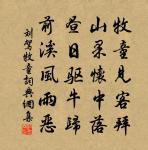 牧童見客拜
山果懷中落
晝日驅牛歸
前溪風雨惡
劉駕牧童詞典網集